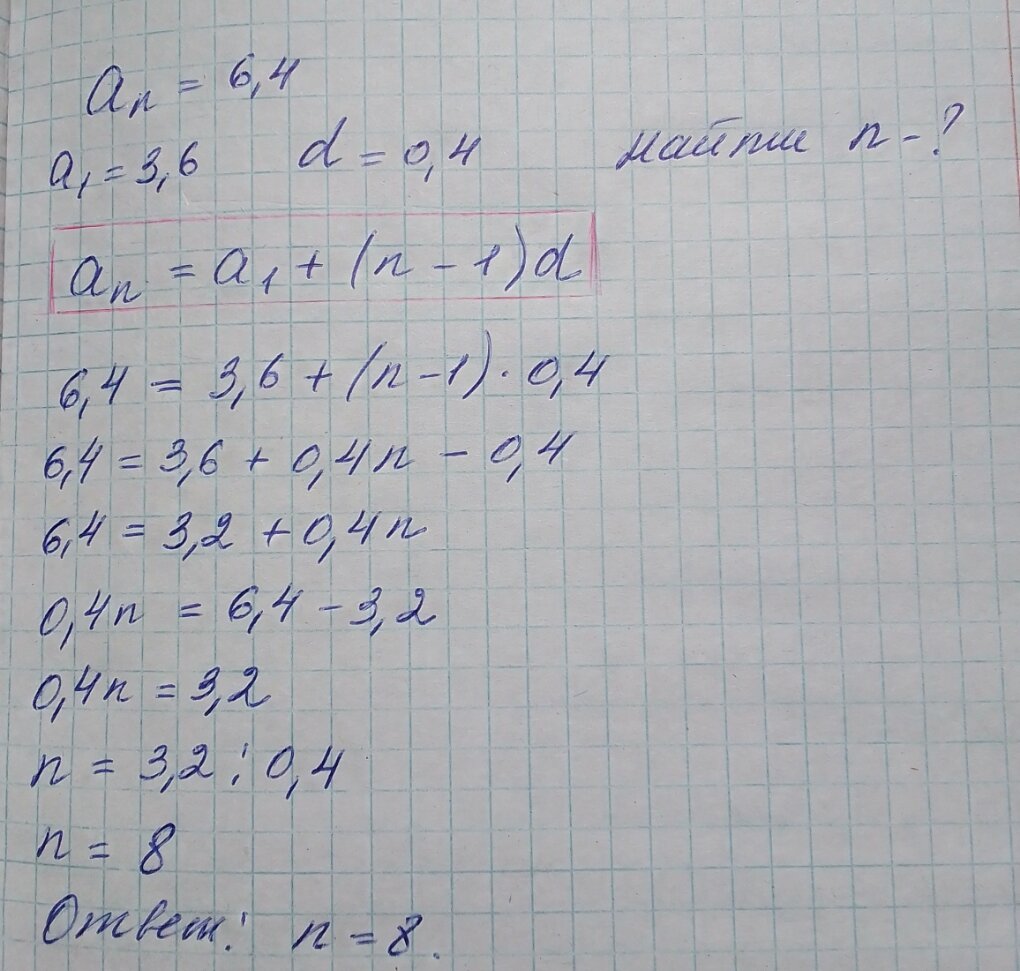 aₙ = 6,4
a₁ = 3,6 d = 0,4 найти n - ?
aₙ = a₁ + (n - 1)d
6,4 = 3,6 + (n - 1) · 0,4
6,4 = 3,6 + 0,4n - 0,4
6,4 = 3,2 + 0,4n
0,4n = 6,4 - 3,2
0,4n = 3,2
n = 3,2 : 0,4
n = 8
Ответ: n = 8.